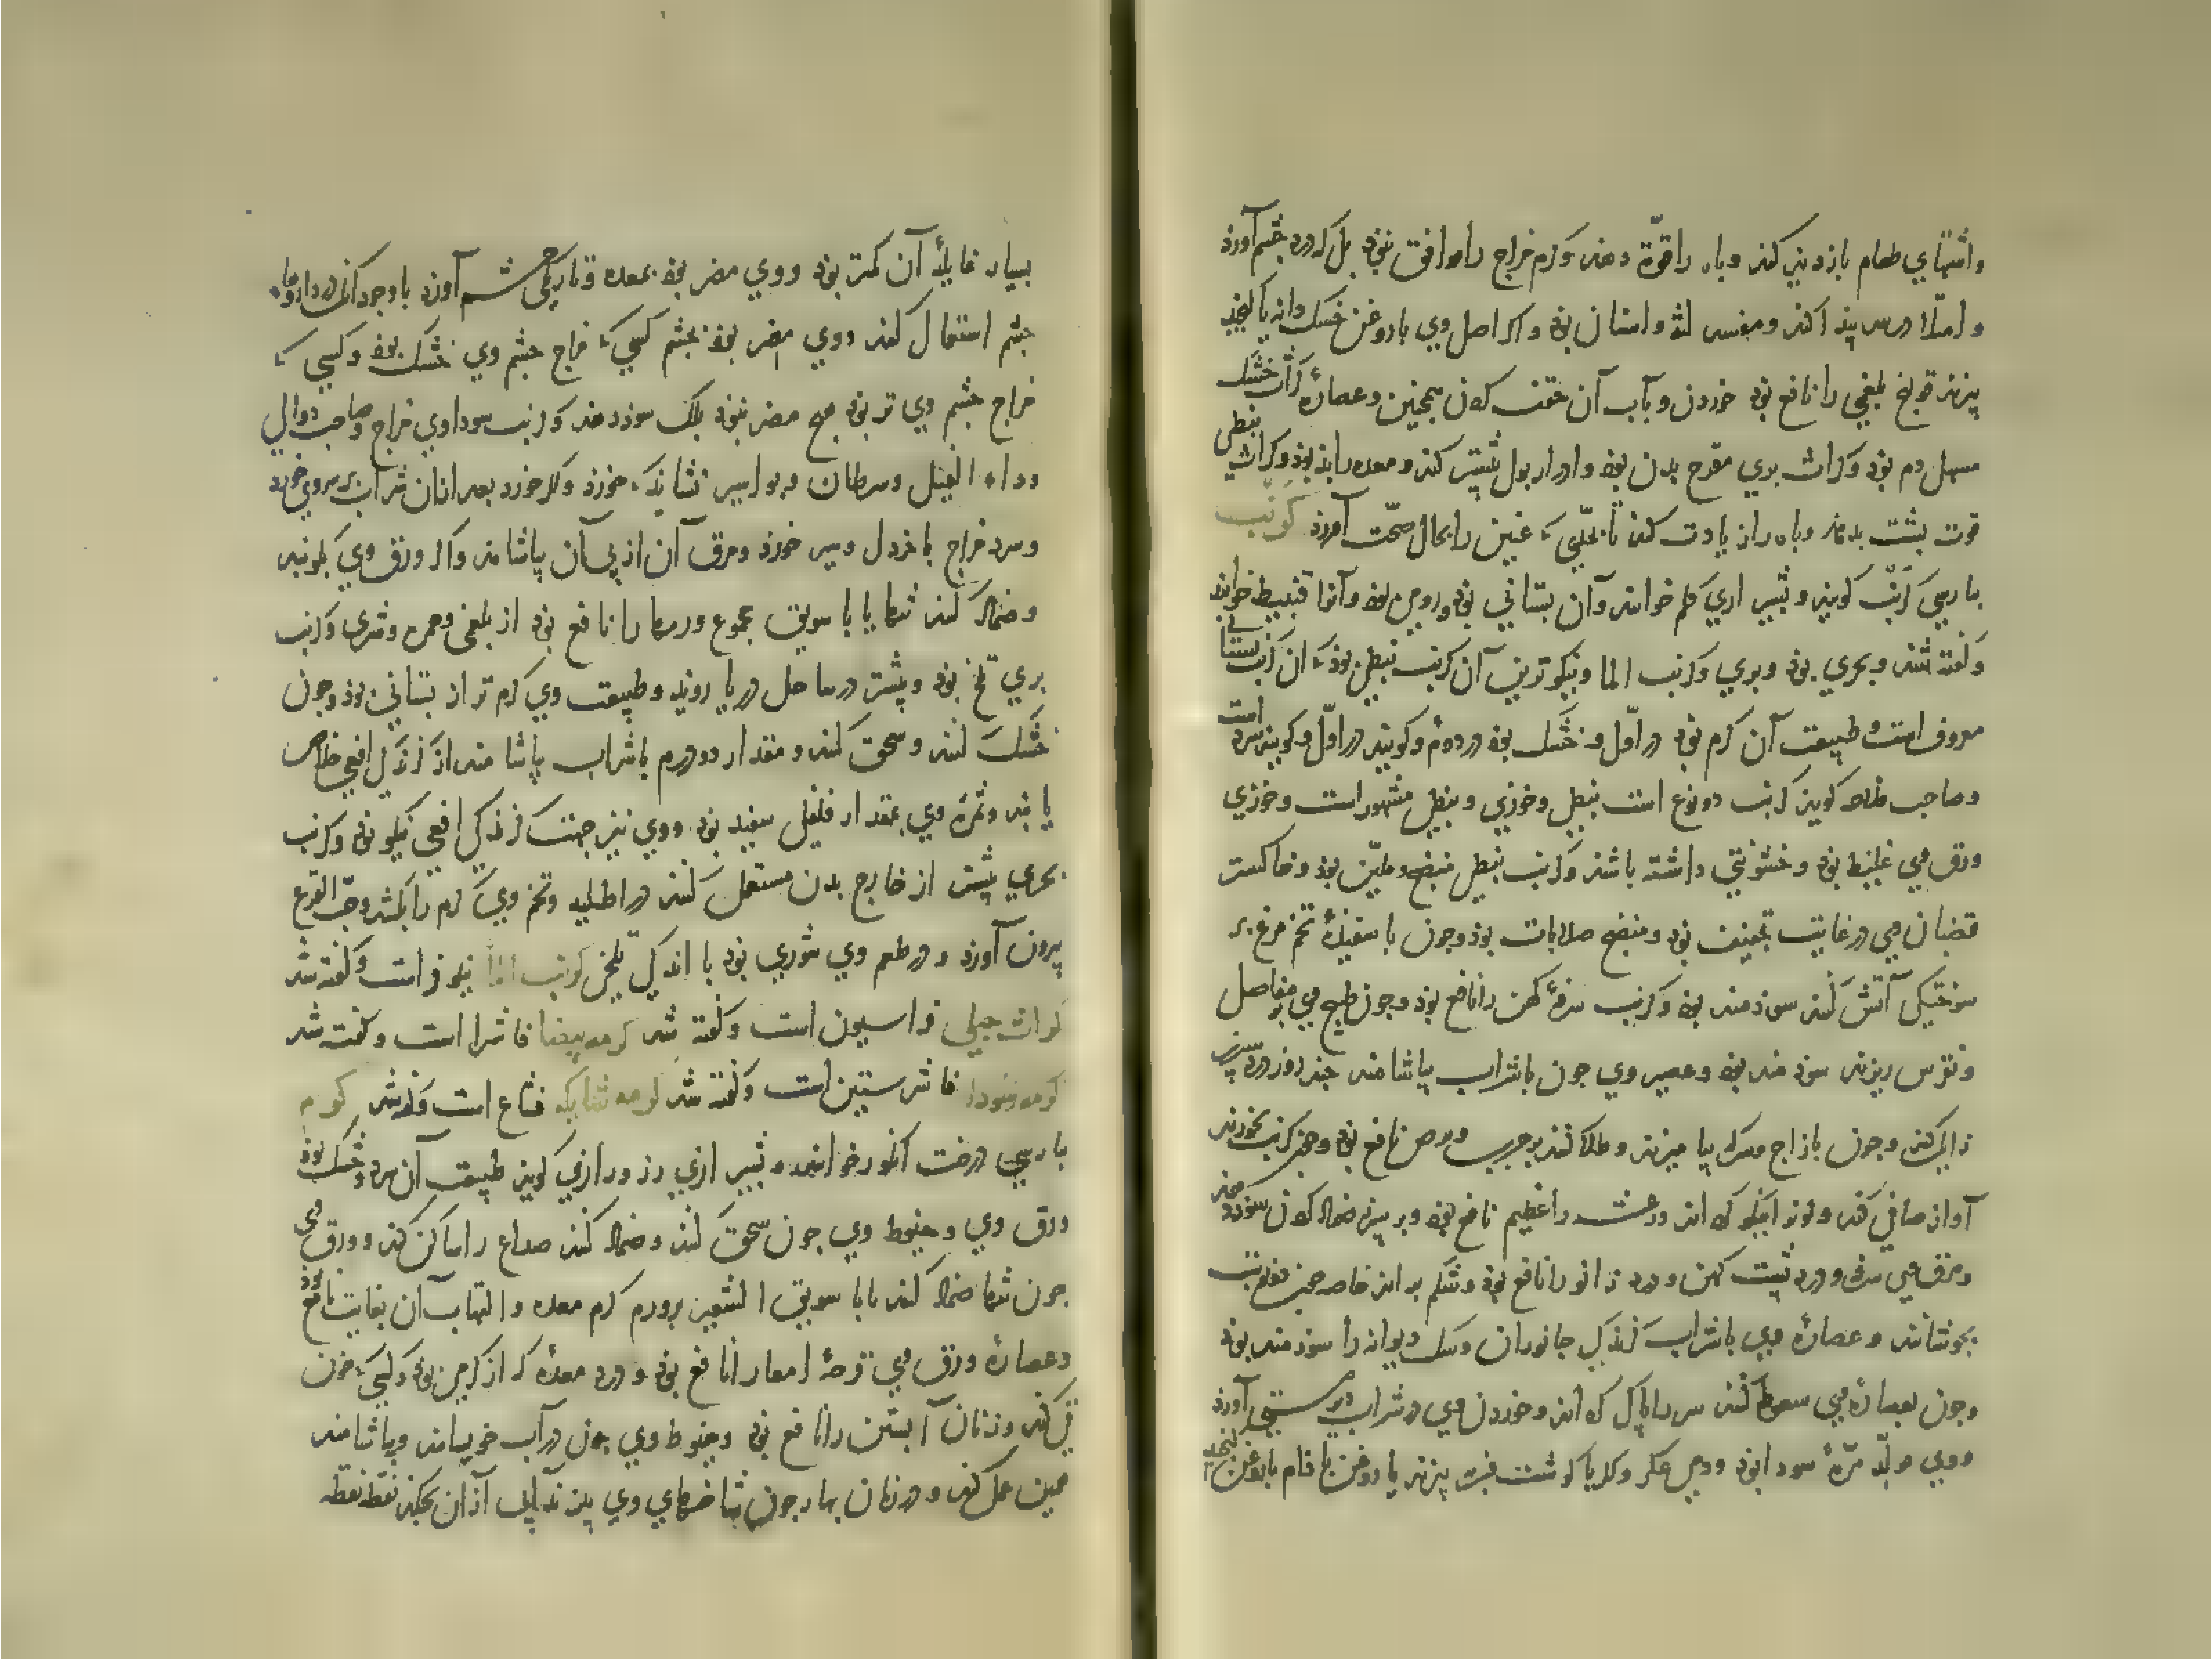 واشتهاي طعام بازديد کند وباه را قوة دهد وکرم مزاج را موافق نبود بل که درد چشم آورد
واملا درسر پيدا کند ومفسد لثه واسنان بود واکر اصل وي با روغن خسک دانه يا کنجد
پزند قولنج بلغمي را نافع بود خوردن وبآب آن حقنه کردن همچنين وعصارهٔ کراث خشک
مسهل دم بود وکراث بري مقرح بدن بود وادرار بول بيشتر کند ومعده را بد بود وکراث نبطي
قوت پشت بدهد وباه را زيادت کند تا بحدّي که عنين را بحال صحّت آورد کرنب
بپارسي کرنب کويند وبشيرازي کلم خوانند وآن بستاني بود ورومي بود وآنرا قنبيط خوانند
وکفته شد وبحري بود وبري وکرنب الما ونيکوترين آن کرنب نبطي بود که آن کرنب بستاني
معروف است وطبيعت آن کرم بود در اوّل وخشک بود در دوم وکويند در اوّل وکويند سرد است
وصاحب فلاحه کويد کرنب دو نوع است نبطي وخوزي ونبطي مشهور است وخوزي
ورق وي غليظ بود وخشونتي داشته باشد وکرنب نبطي منضج وملين بود وخاکستر
قضبان وي در غايت تجفيف بود ومنضج صلابات بود وچون با سفيدهٔ تخم مرغ بر
سوختکي آتش کنند سودمند بود وکرنب سرفهٔ کهن را نافع بود وچون طبيخ وي بر مفاصل
ونقرس ريزند سودمند بود وعصير وي چون با شراب بياشامند چند روز درد سپرز
زايل کند وچون با زاج وسرکه بياميزند وطلا کنند بر جرب وبرص نافع بود وچون کرنب بخورند
آواز صافي کند ولون نيکو کرداند ورعشه را عظيم نافع بود وبر سپرز ضماد کردن سود دهد
ومرق وي سرفه ودرد پشت کهن ودرد زانو را نافع بود وشکم براند خاصه چون دو نوبت
بجوشانند وعصارهٔ وي با شراب کزندکي جانوران وسک ديوانه را سودمند بود
وچون بعصارهٔ وي سعوط کنند سر را پاک کرداند وخوردن وي در شراب دير مستي آورد
ووي مولّد مرّهٔ سودا بود ودمي عکر وکر با کوشت فربه پزند يا روغن بادام يا روغن کنجد
بسيار غايلهٔ آن کمتر بود ووي مضر بود بمعده وتاريکي چشم آورد با وجود آنکه در داروهاء
چشم استعمال کنند ووي مضر بود بچشم کسي که مزاج چشم وي خشک بود وکسي که
مزاج چشم وي تر بود هيچ مضر نبود بلک سود دهد وکرنب سوداوي مزاج وصاحب دوالي
وداء الفيل وسرطان وبواسير نشايد که خورد وکر خورد بعد از آن شراب بر سر وي خورد
وسرد مزاج با خردل وسير خورد ومرق آن از پي آن بياشامد واکر ورق وي بکوبند
وضماد کنند تنها يا با سويق مجموع ورمها را نافع بود از بلغمي وحمره وشري وکرنب
بري تلخ بود وبيشتر در ساحل دريا رويد وطبيعت وي کرم تر از بستاني بود وچون
خشک کنند وسحق کنند ومقدار دو درم با شراب بياشامند از کزندکي افعي خلاص
يابند وثمرهٔ وي بمقدار فلفل سفيد بود ووي نيز جهت کزندکي افعي نيکو بود وکرنب
بحري بيشتر از خارج بدن مستعمل کنند در اطليه وتخم وي کرم را بکشد وحبّ القرع
بيرون آورد ودر طعم وي شوري بود با اندکي تلخي کرنب الما نيلوفر است وکفته شد
کراث جبلي فراسيون است وکفته شد کرمه بيضا فاشرا است وکفته شد
کرمه سودا فاشرستين است وکفته شد کرمه شايکه فشاغ است وکفته شد کرم
بپارسي درخت انکور خوانند وبشيرازي رز ورازي کويد طبيعت آن سرد وخشک بود
ورق وي وخيوط وي چون سحق کنند وضماد کنند صداع را ساکن کند وورق وي
چون تنها ضماد کنند يا با سويق الشعير بر ورم کرم معده والتهاب آن بغايت نافع بود
وعصارهٔ ورق وي قرحهٔ امعا را نافع بود ودرد معده که از کرمي بود وکسي که خون
قي کند وزنان آبستن را نافع بود وخيوط وي چون در آب خيسانند وبياشامند
همين عمل کند ودر زمان بهار چون شاخهاي وي ببرند آب از آن بچکد نقطه نقطه